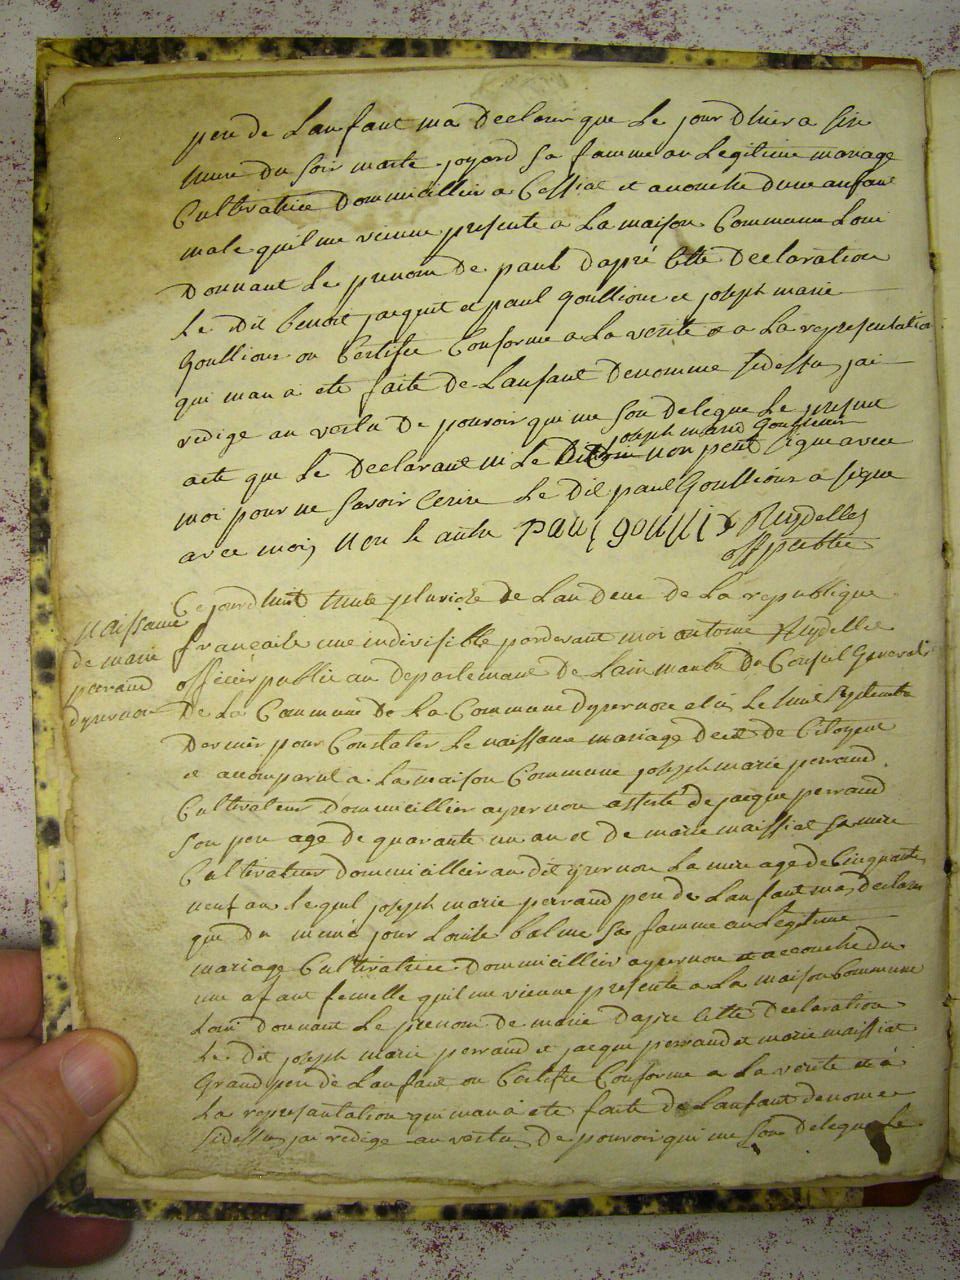 pere de Lanfant ma Declarer que Le jour Dhier a six
heure du soir marte joyard sa famme an Legitime mariage
Cultivatrice Dommicillier a Cessiat et acouché dune anfant
male quil me vienne presente a La maison Commune Loui
Donnant Le prenom De paul Dapré Cette Declaration
Le Dit benoit jacquet et paul Goullioux et joseph marie
Goullioux on Certifee Conforme a La verité et a La representation
qui man a ete faite De Lanfant Denomme sidessu jai
redige an vertu De pouvoir qui me son Delegue Le presant
acte que Le Declarant ni Le Dit joseph marie Goullioux non peut signe avec
moi pour ne savoir Cerire Le Dit paul Goullioux a signe
avec moi, non le autre paul goullix Reydellet
off public
naissance
de marie
perraud
dyzernore
Ce jourdhuit trente pluviose De Lan Deux De La republique
française une indivisible pardevant moi antoine Reydellet
officier public au departemant De Lain manbre Du Conseil General
De La Commune De La Commune Dyzernore elü Le huit septembre
Dernier pour Constater Le naissance mariage Decet De Citoyene
et acomparut a La maison Commune joseph marie perraud
Cultivateur Dommicillier ayzernore assisté De jacque perraud
son pere age De quarante un an et De marie maissiat sa mere
Cultivateur Dommicillier au dit yzernore La mere age de Cinquante
neuf an Lequel joseph marie perraud pere De Lanfant ma Declarer
que Du meme jour Louise balme sa famme an Legitime
mariage Cultivatrice Dommicillier ayzernore et accouché du
une afant femelle quil me vienne presente a La maison Commune
Loui Donnant Le prenom De marie Dapre Cette Declaration
Le Dit joseph marie perraud et jacque perraud et marie maissiat
Grand pere de Lanfant on Certifie Conforme a La verite et a
La represantation qui man a ete faite De Lanfant denomee
sidessu, jai redige an vertu, De pouvoir qui me son Delegue Le